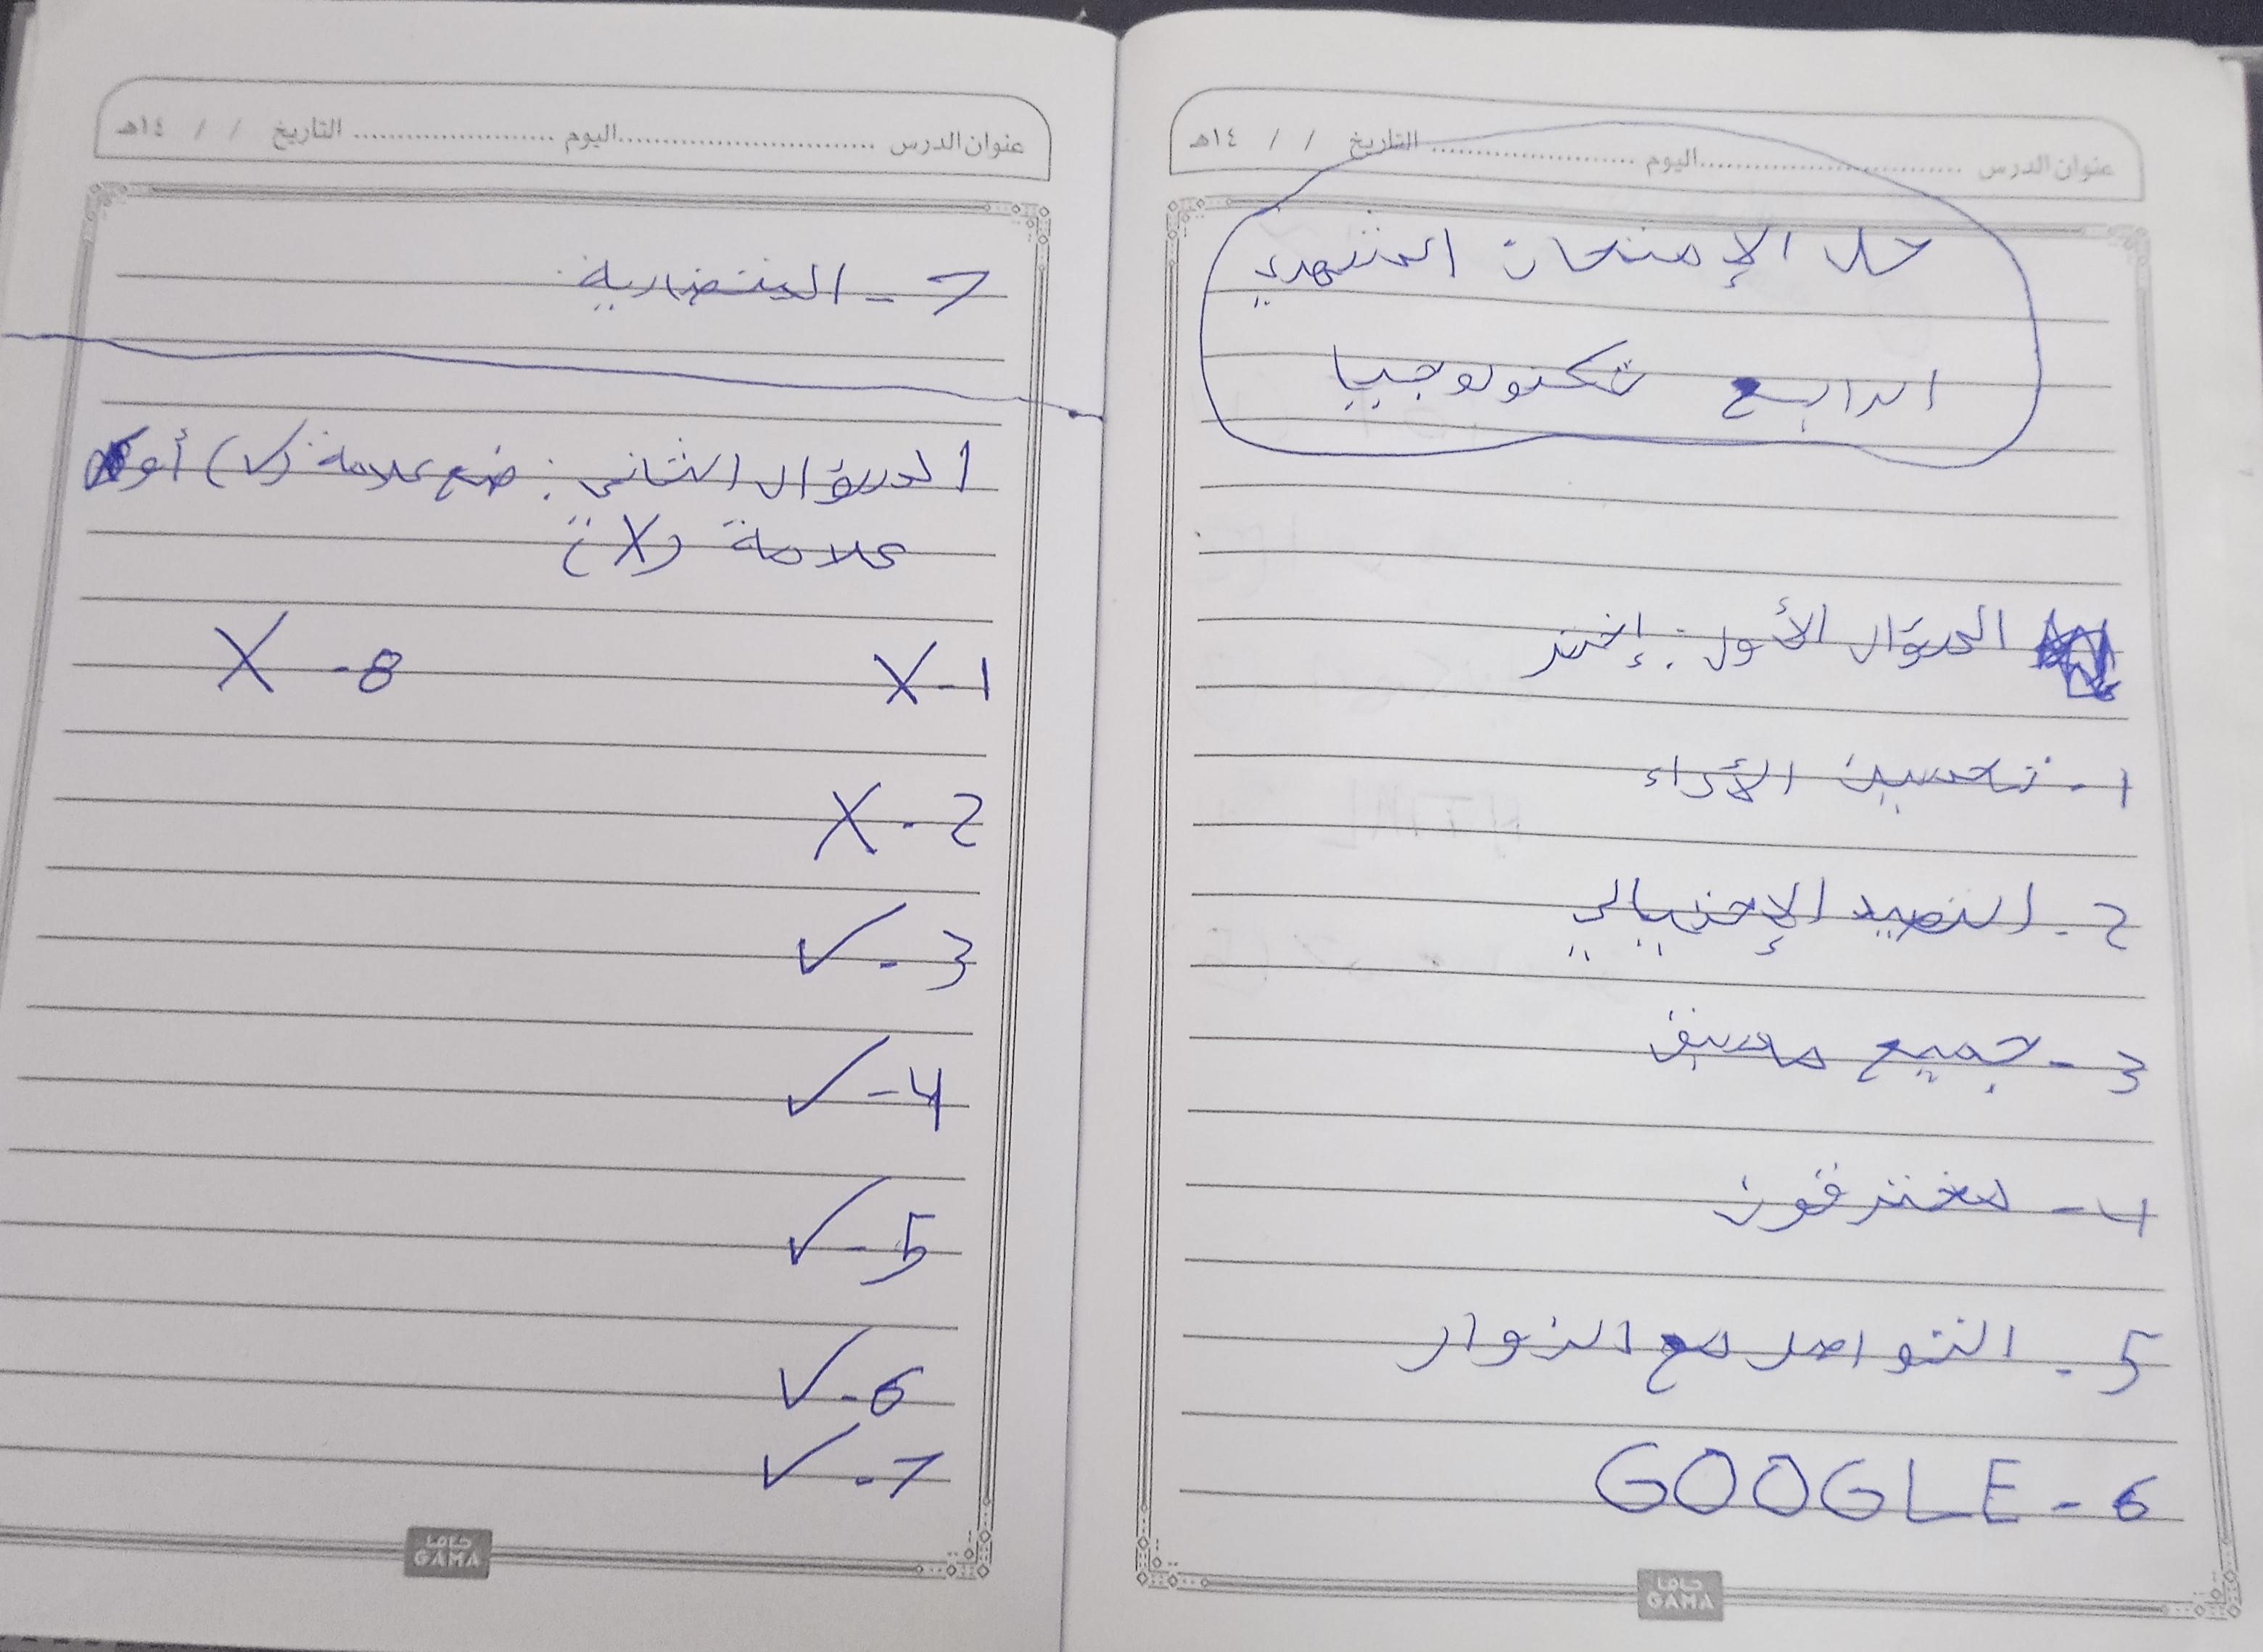 عنوان الدرس ........................ اليوم ........................ التاريخ / / ١٤هـ
حل الإمتحان الشهري
الرابع تكنولوجيا
السؤال الأول: إختر
1- تحسين الأداء
2- التصيد الإحتيالي
3- جميع ماسبق
4- مخترقون
5- التواصل مع الزوار
6- GOOGLE
جاما
GAMA
عنوان الدرس ........................ اليوم ........................ التاريخ / / ١٤هـ
7- التضاربية
السؤال الثاني: ضع علامة (✓) أو
علامة (X)
1- X
2- X
3- ✓
4- ✓
5- ✓
6- ✓
7- ✓
8- X
جاما
GAMA